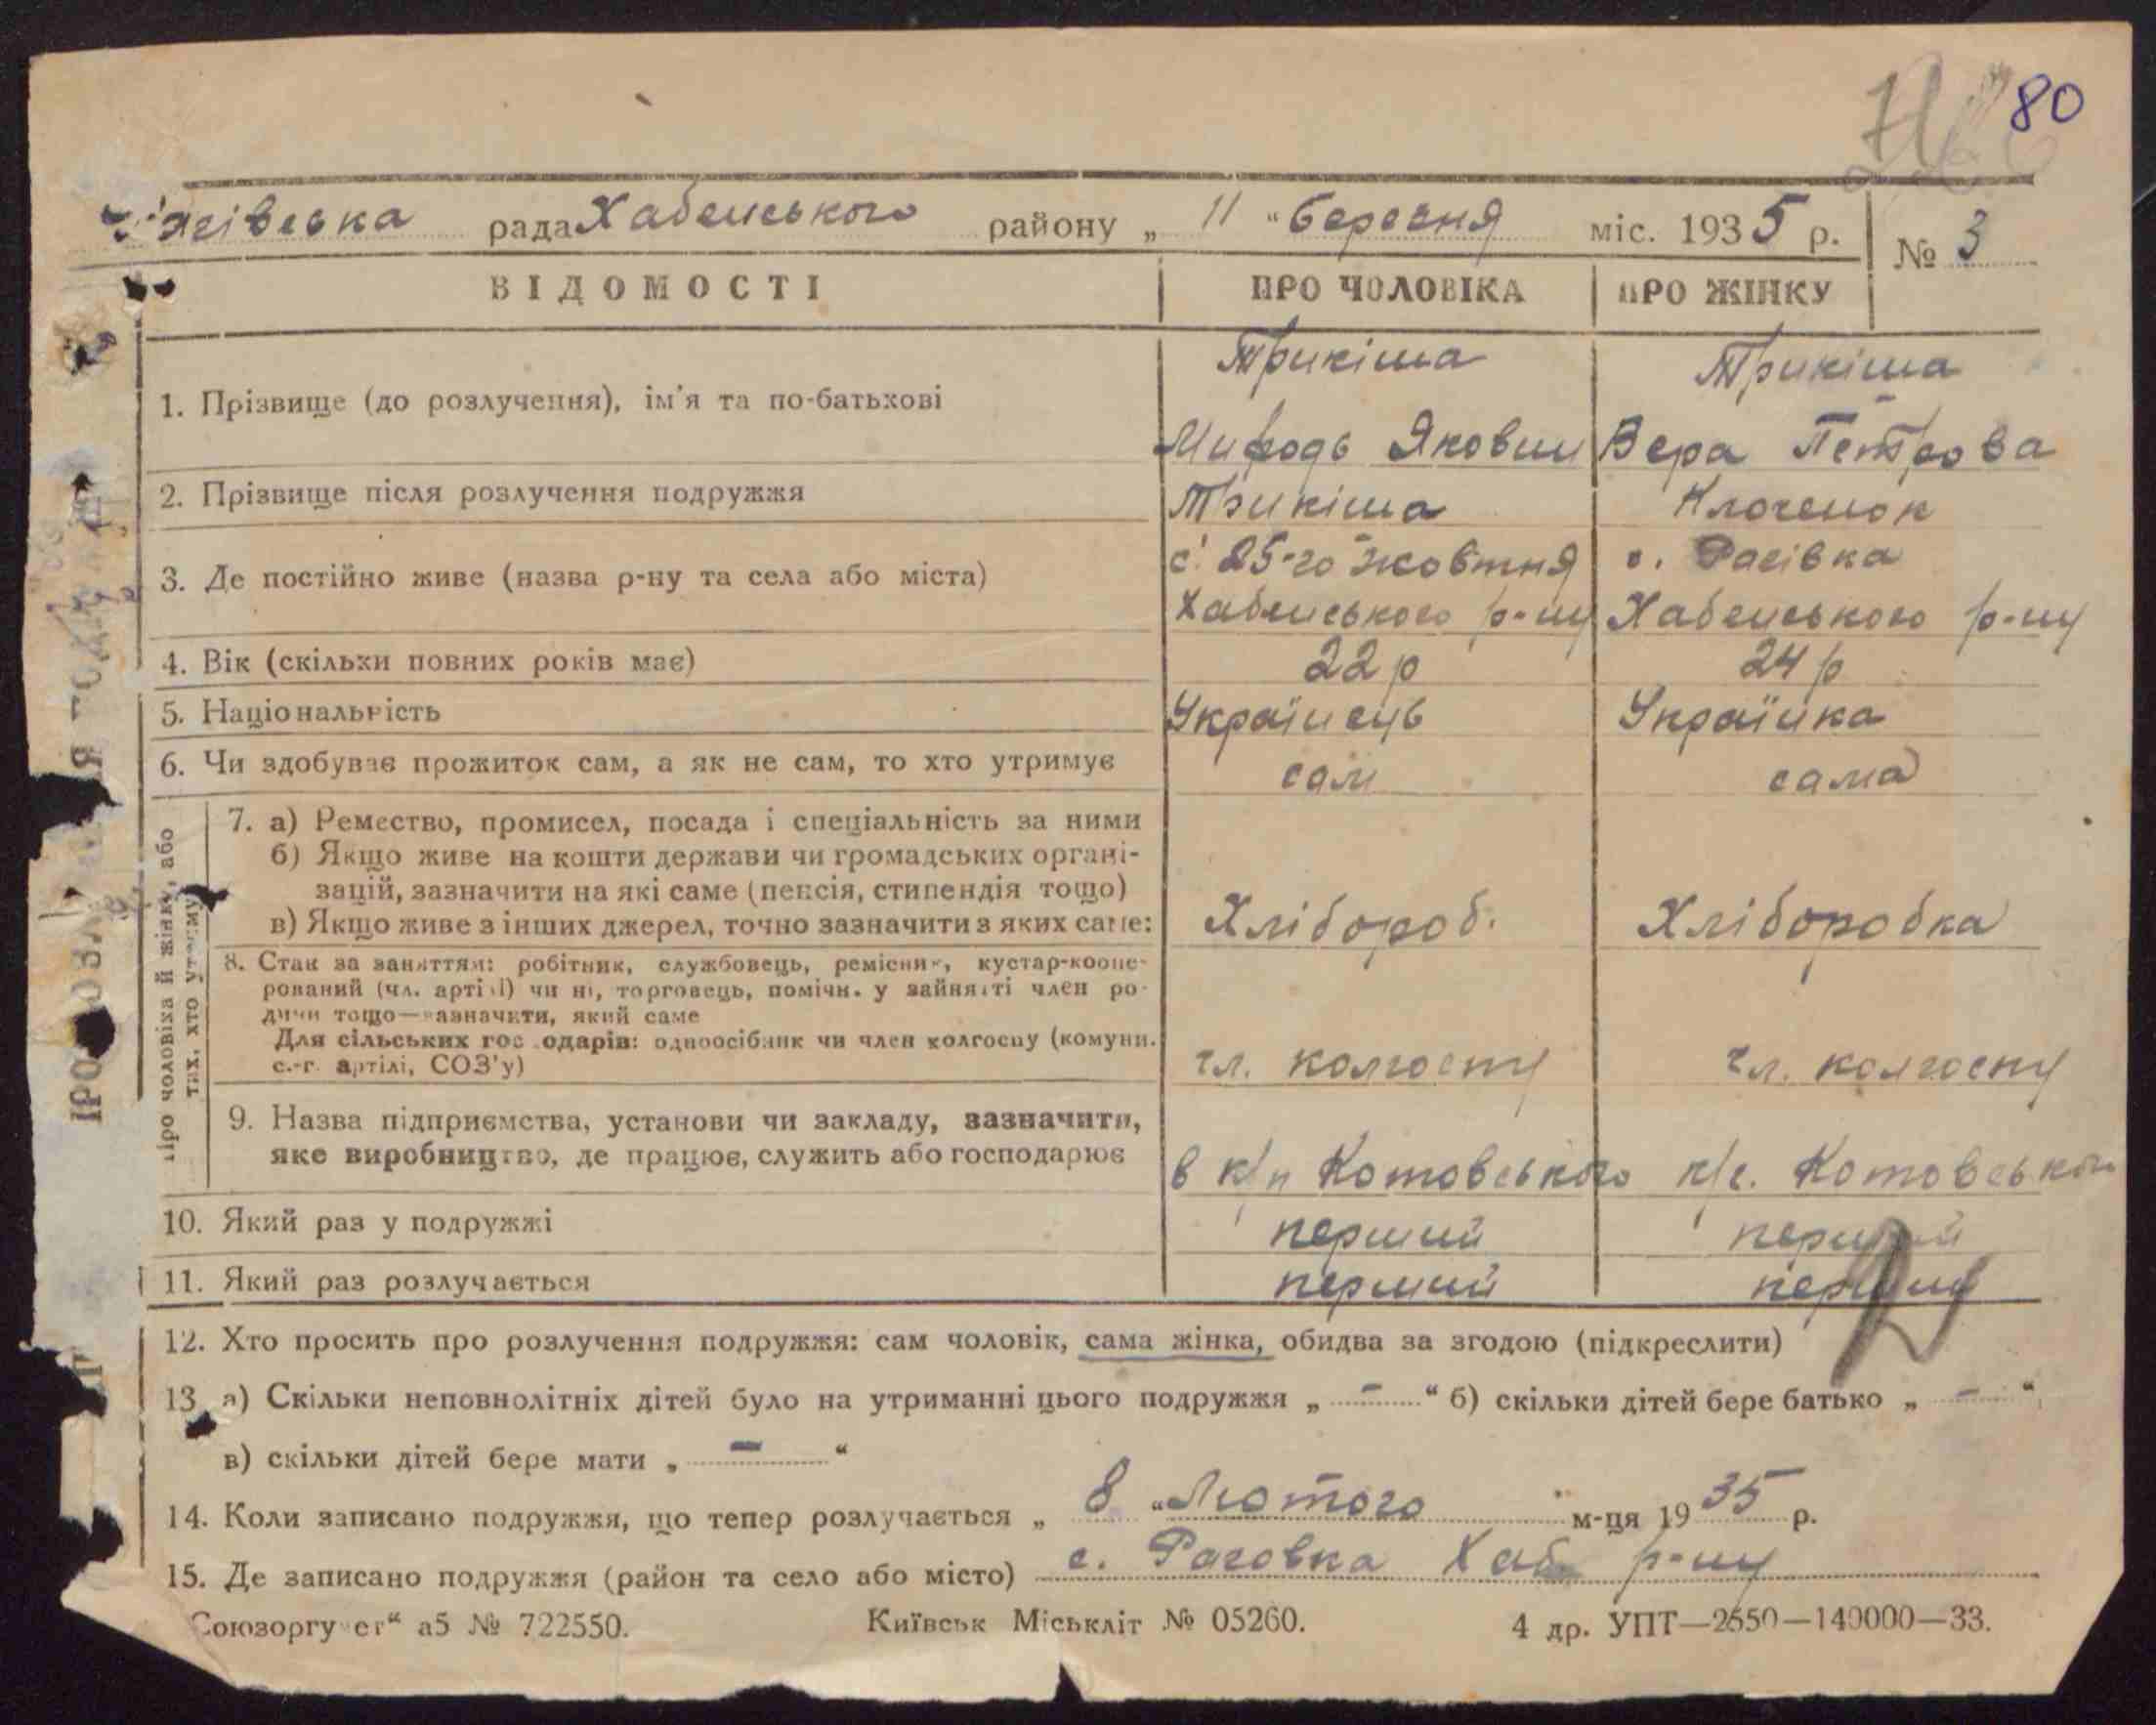 80
рада Хабенського району „ 11 “ березня міс. 1935 р. № 3
ВІДОМОСТІ ПРО ЧОЛОВІКА ПРО ЖІНКУ
Трикіша Трикіша
1. Прізвище (до розлучення), ім'я та по-батькові
Мифодь Якович Вера Петрова
2. Прізвище після розлучення подружжя Трикіша Клоченок
с. 25-го жовтня с. Рагівка
3. Де постійно живе (назва р-ну та села або міста)
Хабенського р-ну Хабенського р-ну
4. Вік (скільки повних років має) 22 р 24 р
5. Національність Українець Українка
6. Чи здобуває прожиток сам, а як не сам, то хто утримує сам сама
Про чоловіка й жінку, або тих, хто утримує
7. а) Ремество, промисел, посада і спеціальність за ними
б) Якщо живе на кошти держави чи громадських органі-
зацій, зазначити на які саме (пенсія, стипендія тощо)
в) Якщо живе з інших джерел, точно зазначити з яких саме: Хлібороб. Хліборобка
8. Стан за заняттям: робітник, службовець, ремісник, кустар-коопе-
рований (чл. артілі) чи ні, торговець, помічн. у зайнятті член ро-
дини тощо—зазначити, який саме
Для сільських господарів: одноосібник чи член колгоспу (комуни.
с.-г. артілі, СОЗ'у) чл. колгоспу чл. колгоспу
9. Назва підприємства, установи чи закладу, зазначити,
яке виробництво, де працює, служить або господарює в к/п Котовського к/г. Котовського
10. Який раз у подружжі перший перший
11. Який раз розлучається перший перший
12. Хто просить про розлучення подружжя: сам чоловік, сама жінка, обидва за згодою (підкреслити)
13 а) Скільки неповнолітніх дітей було на утриманні цього подружжя „ — “ б) скільки дітей бере батько „ — “,
в) скільки дітей бере мати „ — “
14. Коли записано подружжя, що тепер розлучається „ 8 “ Лютого м-ця 1935 р.
15. Де записано подружжя (район та село або місто) с. Раговка Хаб р-ну
а5 № 722550. Київськ Міськліт № 05260. 4 др. УПТ—2550—140000—33.